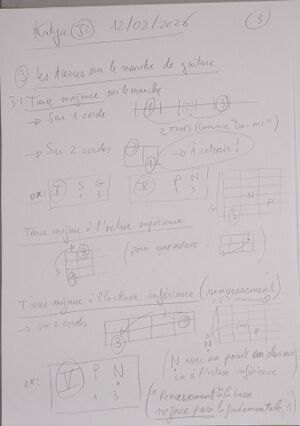 Katya J2 12/02/2026 3
3 Les tierces sur le manche de guitare
3.1 Tierce majeure sur le manche
→ Sur 1 corde 1 3
2 TONS (comme "Do-mi")
→ Sur 2 cordes 3 1 → à retenir!
ex: I S G V P N
3 3
N P
G S
Tierce majeure à l'octave supérieure
P 3
3
(pour une octave =
Tierce majeure à l'octave inférieure (renversement)
→ Sur 2 cordes
3 1
P
N
ex: V P N
1 3
(N avec un point en dessous
= à l'octave inférieure)
(* Renversement = la basse
n'est pas la fondamentale, 1)